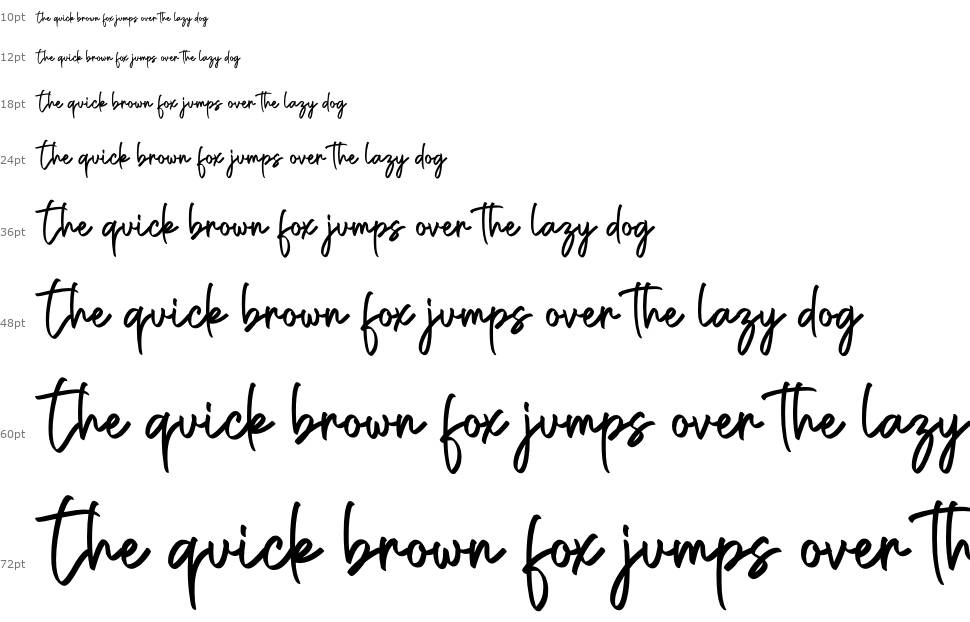 10pt the quick brown fox jumps over the lazy dog
12pt the quick brown fox jumps over the lazy dog
18pt the quick brown fox jumps over the lazy dog
24pt the quick brown fox jumps over the lazy dog
36pt the quick brown fox jumps over the lazy dog
48pt the quick brown fox jumps over the lazy dog
60pt the quick brown fox jumps over the lazy
72pt the quick brown fox jumps over th